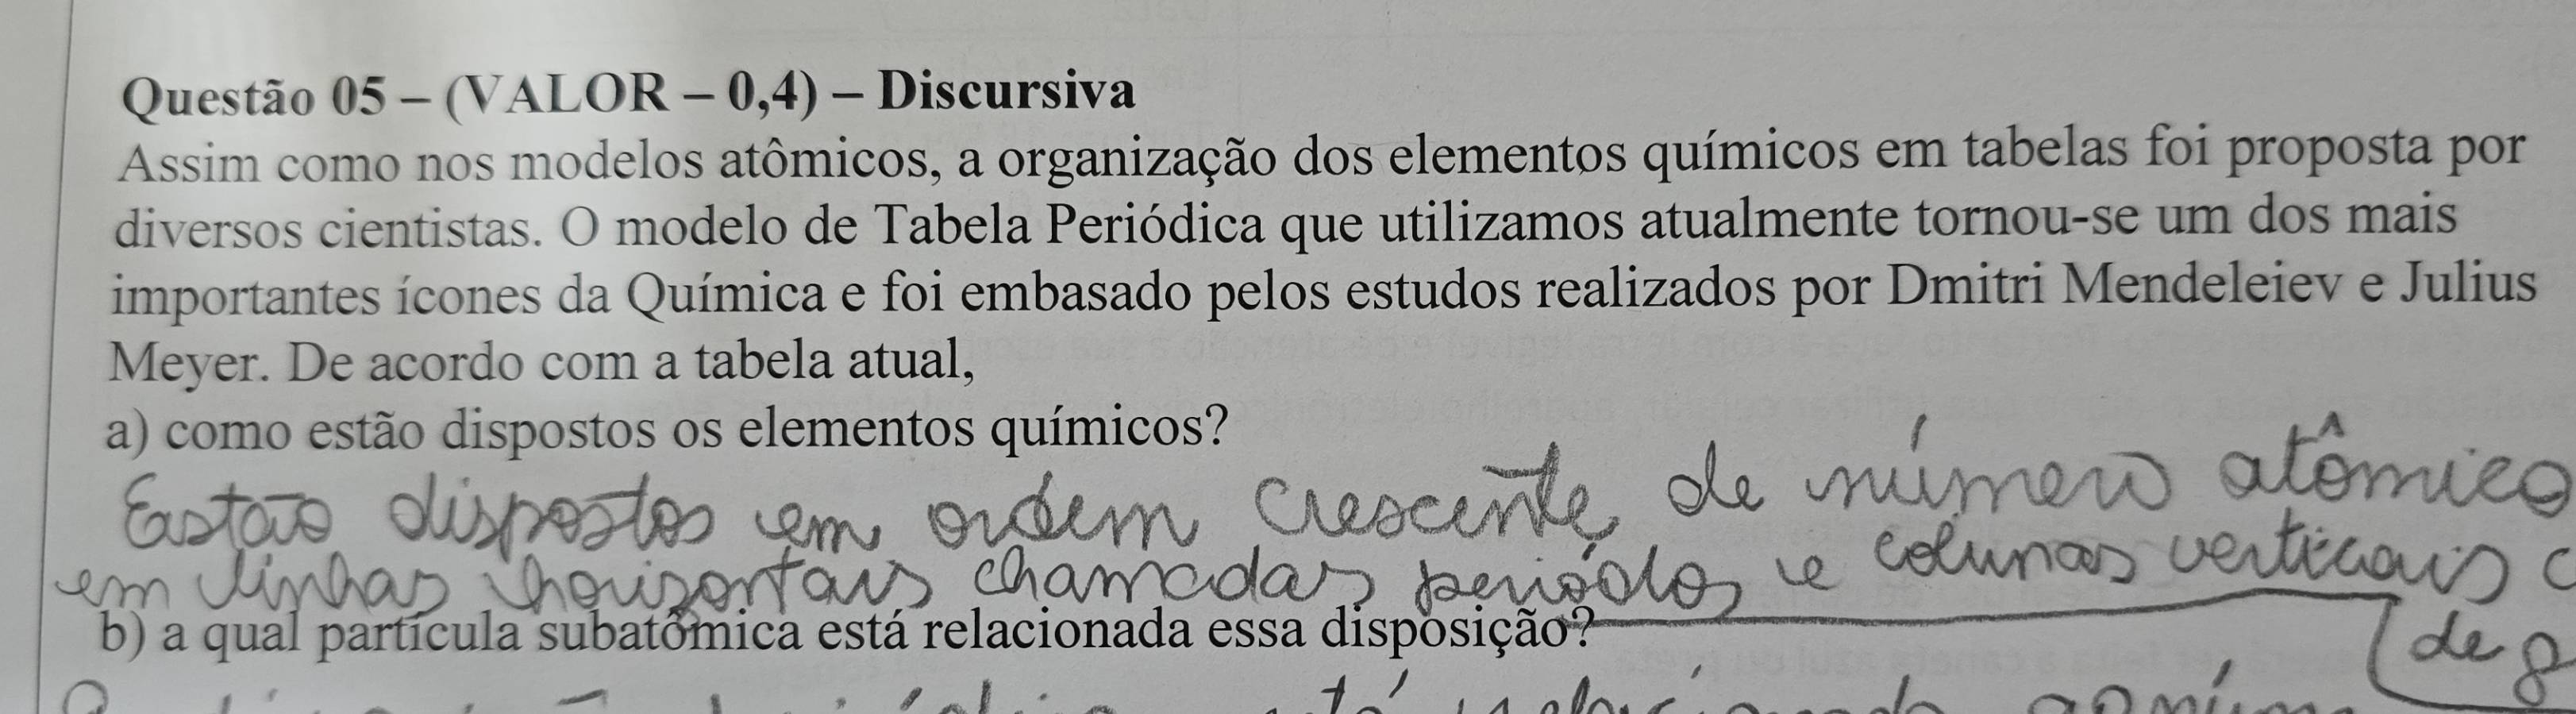 Questão 05 – (VALOR – 0,4) – Discursiva
Assim como nos modelos atômicos, a organização dos elementos químicos em tabelas foi proposta por
diversos cientistas. O modelo de Tabela Periódica que utilizamos atualmente tornou-se um dos mais
importantes ícones da Química e foi embasado pelos estudos realizados por Dmitri Mendeleiev e Julius
Meyer. De acordo com a tabela atual,
a) como estão dispostos os elementos químicos?
Estão dispostos em ordem crescente de número atômico
em linhas horizontais chamadas períodos e colunas verticais
b) a qual partícula subatômica está relacionada essa disposição?
de